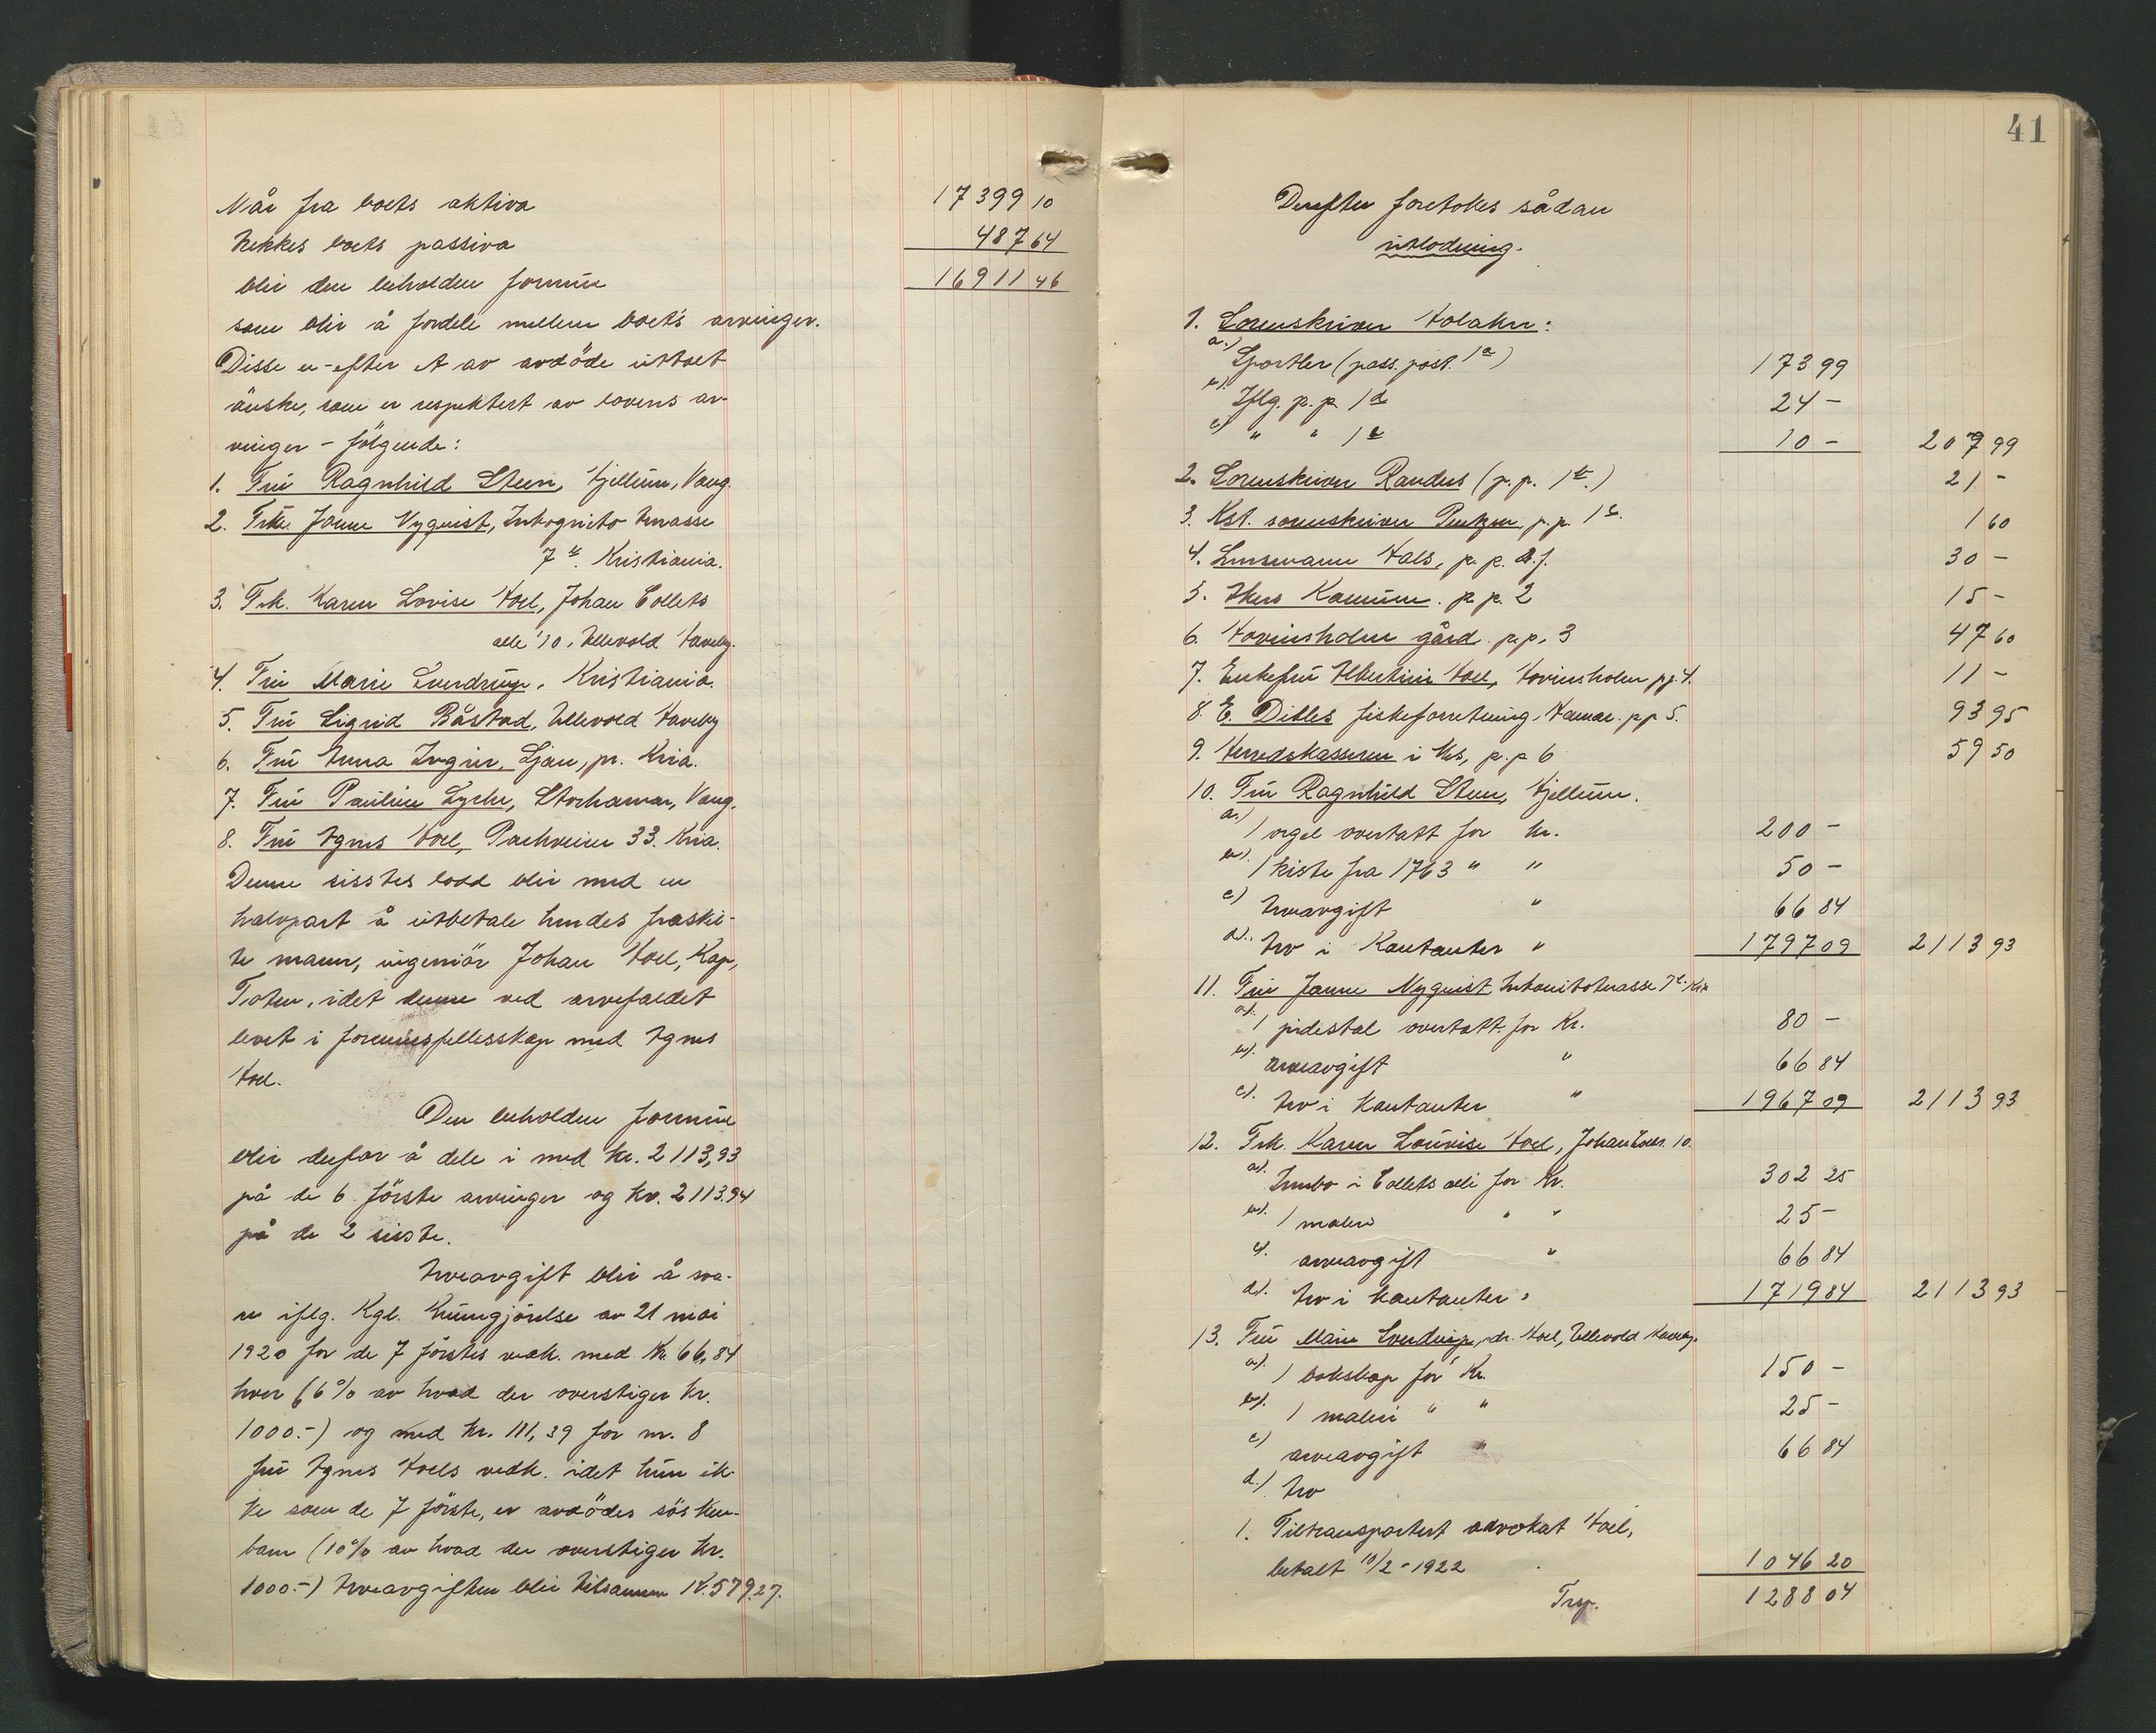 Når fra boets aktiva 17399 10
trekkes boets passiva 487 64
blir den beholden formue 16911 46
som blir å fordele mellem boets arvinger.
Disse er - efter A av avdöde uttalt
önske, som er respektert av lovens ar
vinger - fölgende:
1. Fru Ragnhild Steen, Hjellum, Vang.
2. Frk. Janne Nyquist, Inkognito terrasse
7 II. Kristiania.
3. Frk. Karen Lovise Hoel, Johan Collets
alle' 10, Ullevold Haveby.
4. Fru Marie Sverdrup, Kristiania.
5. Fru Sigrid Båstad, Ullevold Haveby
6. Fru Anna Ingier, Ljan, pr. Kria.
7. Fru Pauline Lyche, Storhamar, Vang.
8. Fru Agnes Hoel, Parkveien 33. Kria.
Denne sisstes lodd blir med en
halvpart å utbetale hendes fraskil-
te mann, ingeniör Johan Hoel, Kap,
Toten, idet denne ved arvefaldet
levet i formuesfellesskap med Agnes
Hoel.
Den beholden formue
blir derfor å dele i med kr. 2113,93
på de 6 förste arvinger og kr. 2113.94
på de 2 sisste.
Arveavgift blir å sva-
re iflg. Kgl. Kunngjörelse av 21 mai
1920 for de 7 förstes vedk. med Kr. 66,84
hver (6% av hvad der overstiger kr.
1000.-) og med kr. 111,39 for nr. 8
fru Agnes Hoels vedk. idet hun ik-
ke som de 7 förste, er avdödes sösken-
barn (10% av hvad der overstiger kr.
1000.-) Arveavgiften blir tilsammen K. 579.27.
41
Derefter foretokes sådan
utlodning.
1. Sorenskriver Holahn:
a.) Sportler (pass. post. 1 a) 173 99
b). Iflg. p. p. 1 d 24 -
c) " " 1 e 10 - 207 99
2. Sorenskriver Randers (p. p. 1 b.) 21 -
3. Kst. sorenskriver p. p. 1 c. 1 60
4. Lensmann Hals, p. p. 1 f. 30 -
5. Thers Kammen. p. p. 2 15 -
6. Hovinsholm gård. p. p. 3 47 60
7. Enkefru Albertine Hoel, Hovinsholm pp. 4. 11 -
8. E. Dibles fiskeforretning, Hamar. pp 5. 93 95
9. Herredskasseren i Nes, p. p 6 59 50
10. Fru Ragnhild Steen, Hjellum.
a.) 1 orgel overtatt for kr. 200 -
b). 1 kiste fra 1763 " " 50 -
c) Arveavgift " 66 84
d). Arv i Kontanter " 1797 09 2113 93
11. Fru Janne Nyquist, 7 II. Kria
a). 1 pidestal overtatt for Kr. 80 -
b). arveavgift " 66 84
c). Arv i kontanter " 1967 09 2113 93
12. Frk. Karen Louvise Hoel, Johan Coll. 10.
a). Innbo i Collets alle for Kr. 302 25
b). 1 maleri " " 25 -
c). arveavgift " 66 84
d). Arv i kontanter " 1719 84 2113 93
13. Fru Marie Sverdrup, adr. Hoel, Ullevold Haveby.
a). 1 bokskap for Kr. 150 -
b). 1 maleri " " 25 -
c) arveavgift " 66 84
d.) Arv
1. Tiltransportert advokat Hoel,
betalt 10/2 - 1922 1046 20
Trsp. 1288 04